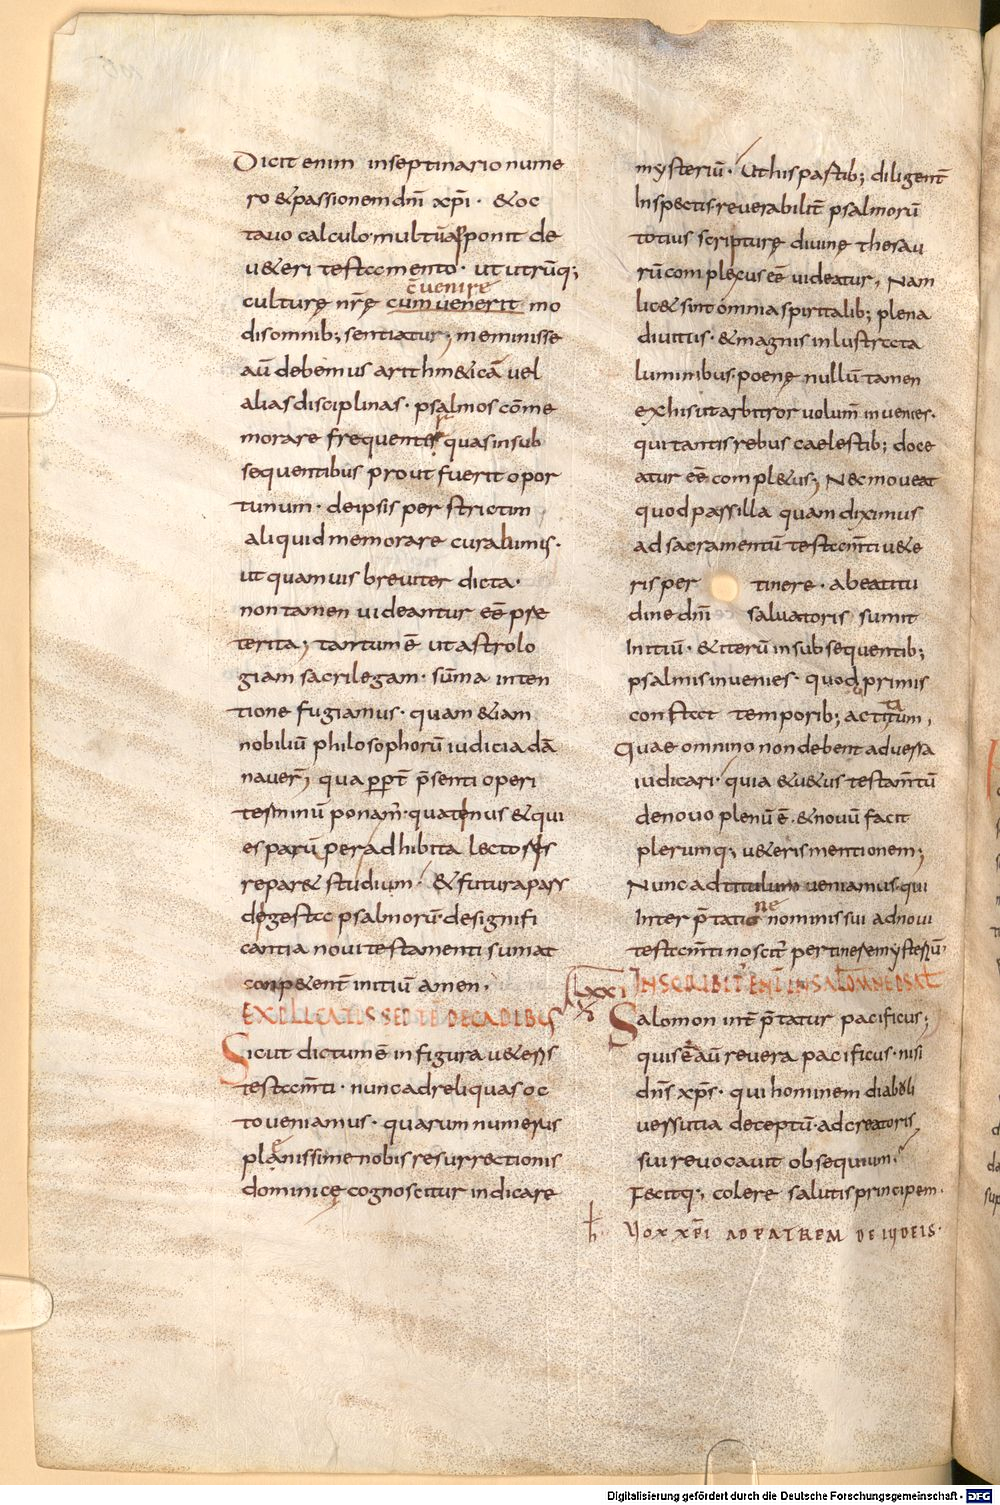 Dicit enim inseptinario nume
ro &passionem dnī xpī · &oc
tauo calculo·multūasponit de
u&eri testamento· ut utrūq;
cēuenire
culturę nrę cum uenerit mo
dis omnib; sentiatur; meminisse
aū debemus arithm&icā uel
alias disciplinas· psalmos cōme
morare frequentes quas insub
sequentibus prout fuerit opor
tunum· deipsis per strictim
aliquid memorare curabimus·
ut quamuis breuiter dicta·
non tamen uideantur eē pre
terita; tantum ē ut astrolo
giam sacrilegam· sūma inten
tione fugiamus· quam &iam
nobiliū philosophorū iudicia dā
nauer; qua pp̄t p̄senti operi
terminū ponam· quatenus &qui
es parū per adhibita lectores
repar& studium· &futura pars
degesta psalmorū·designifi
cantia noui testamenti sumat
conpetent initiū amen·
EXPLICATIS SEPTĒ DECADIBUS
Sicut dictum ē in figura u&eris
testam̄ti· nunc ad reliquas oc
to ueniamus· quarum numerus
planissime nobis resurrectionis
dominicę cognoscitur indicare
mysteriū· Ut his pastib; diligent̄
Inspectis·reuerabilit̄ psalmorū
totius scripturę diuinę thesau
rū complexus eē uideatur, Nam
lic& sint omnia spiritalib; plena
diuitiis· &magnis inlustrata
luminibus·poenę nullū tamen
exhis ut arbitror uolum̄ inuenies·
qui tantis rebus caelestib; doce
atur eē compl&us; Nec moueat
quod passilla quam diximus
ad sacramentū testam̄ti u&e
ris per tinere· a beatitu
dine dnī saluatoris sumit
Initiū· &iterū in subsequentib;
psalmis inuenies· quod primis
constat temporib; actitatum,
Quae omnino non debent aduersa
iudicari· quia &u&us testam̄tū
denouo plenū ē·&nouū facit
plerumq; u&eris mentionem;
Nunc ad titulum ueniamus·qui
Inter p̄tatione nominis sui ad noui
testam̄ti noscit̄ pertinere mysteriū·
LXXI INSCRIBIT ENĪ IN SALOMONE PSALT
Salomon int̄ p̄tatur pacificus;
quis ē aū reuera pacificus·nisi
dn̄s xp̄s· qui hominem diaboli
uersutia deceptū·ad creatoris
sui reuocauit obsequium·
Fecitq; colere salutis principem·
Uox xpī ad patrem de iudeis·
Digitalisierung gefördert durch die Deutsche Forschungsgemeinschaft - DFG